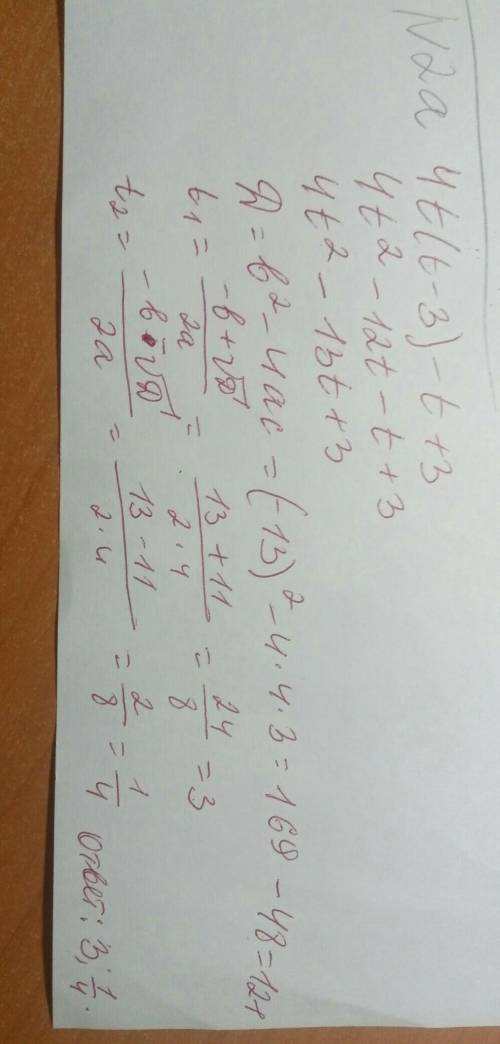 N2a 4t(t-3)-t+3
4t²-12t-t+3
4t²-13t+3
D=b²-4ac=(-13)²-4·4·3=169-48=121
t₁=(-b+√D)/2a=(13+11)/2·4=24/8=3
t₂=(-b-√D)/2a=(13-11)/2·4=2/8=1/4 Ответ: 3; 1/4.